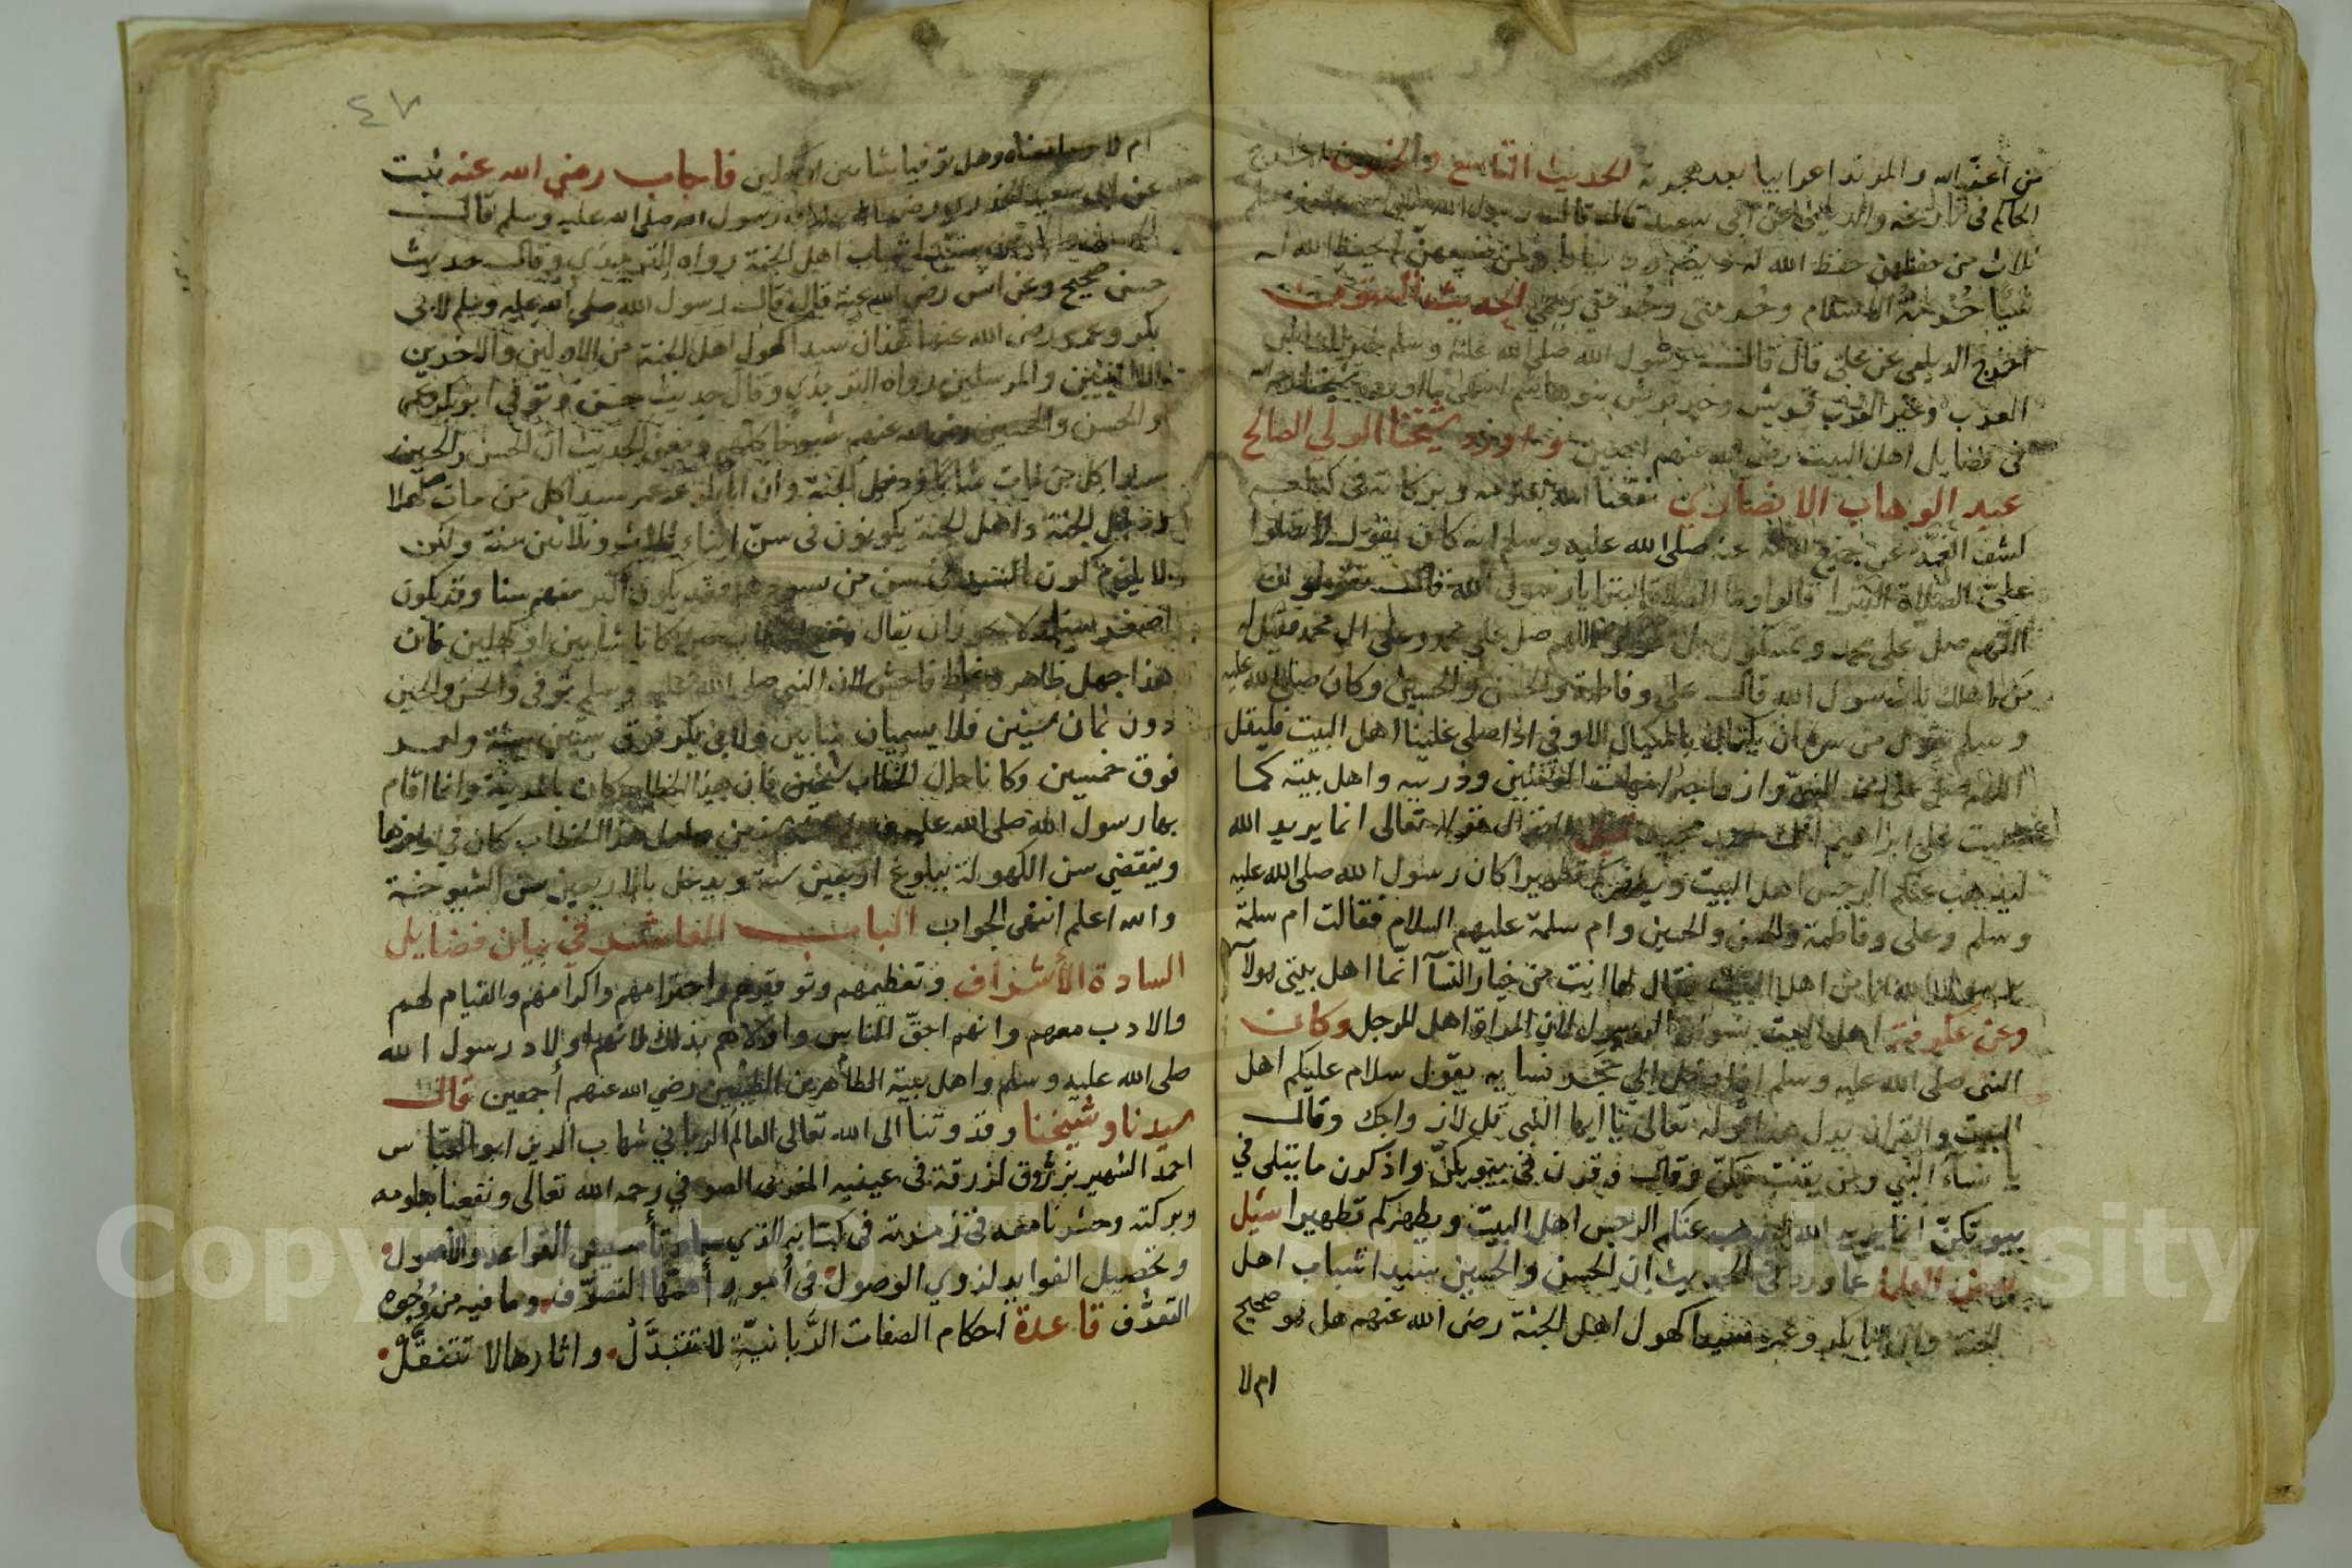 من اعزه الله والمرتد اعرابيا بعد هجرته الحديث التاسع والخمسون اخرج
الحاكم في تاريخه والديلمي عن ابي سعيد قال قال رسول الله صلى الله عليه وسلم
ثلاث من حفظهن حفظ الله له دينه ودنياه ومن ضيعهن لم يحفظ الله له
شيئا حرمة الاسلام وحرمتي وحرمة رحمي الحديث الستون
اخرج الديلمي عن علي قال قال رسول الله صلى الله عليه وسلم خير الناس
العرب وخير العرب قريش وخير قريش بنو هاشم انتهى ما اورده
في فضايل اهل البيت رضي الله عنهم اجمعين واورد شيخنا الولي الصالح
عبد الوهاب الانصاري نفعنا الله بعلومه وبركاته في كتابه
كشف الغمة عن جميع الامة عنه صلى الله عليه وسلم انه كان يقول لا تصلوا
علي الصلاة البترا قالوا وما الصلاة البترا يا رسول الله قال تقولون
اللهم صل على محمد وتمسكون بل قولوا اللهم صل على محمد وعلى ال محمد فقيل له
من اهلك يا رسول الله قال علي وفاطمة والحسن والحسين وكان صلى الله عليه
وسلم يقول من سره ان يكتال بالمكيال الاوفى اذا صلى علينا اهل البيت فليقل
اللهم صل على محمد النبي وازواجه امهات المؤمنين وذريته واهل بيته كما
صليت على ابراهيم انك حميد مجيد قوله تعالى انما يريد الله
ليذهب عنكم الرجس اهل البيت ويطهركم تطهيرا كان رسول الله صلى الله عليه
وسلم وعلي وفاطمة والحسن والحسين وام سلمة عليهم السلام فقالت ام سلمة
يا رسول الله انا من اهل البيت فقال لها انت من خيار النسآ انما اهل بيتي هولآ
وعن عكرمة اهل البيت نسوان الرسول لان المراة اهل للرجل وكان
النبي صلى الله عليه وسلم اذا دخل الي حجر نسايه يقول سلام عليكم اهل
البيت والقران يدل قوله تعالى يا ايها النبي قل لازواجك وقال
يا نساء النبي ومن يقنت منكن وقال وقرن في بيوتكن واذكرن ما يتلى في
بيوتكن انما يريد الله ليذهب عنكم الرجس اهل البيت ويطهركم تطهيرا سيل
بعض العلما عما ورد في الحديث ان الحسن والحسين سيدا شباب اهل
الجنة وان ابا بكر وعمر سيدا كهول اهل الجنة رضي الله عنهم هل هو صحيح
ام لا
٤٧
ام لا وما معناه وهل توفيا شابين او كهلين فاجاب رضي الله عنه ثبت
عن ابي سعيد الخدري رضي الله عنه ان رسول الله صلى الله عليه وسلم قال
الحسن والحسين سيدا شباب اهل الجنة رواه الترمذي وقال حديث
حسن صحيح وعن انس رضي الله عنه قال قال رسول الله صلى الله عليه وسلم لابي
بكر وعمر رضي الله عنهما هذان سيدا كهول اهل الجنة من الاولين والاخرين
الا النبيين والمرسلين رواه الترمذي وقال حديث حسن وتوفي ابو بكر وعمر
والحسن والحسين رضي الله عنهم شيوخا كلهم ومعنى الحديث ان الحسن والحسين
سيدا كل من مات شابا ودخل الجنة وان ابا بكر وعمر سيدا كل من مات كهلا
ودخل الجنة واهل الجنة يكونون في سن ابناء ثلاث وثلاثين سنة ولكن
لا يلزم كون السيد في سن من سيدهم فقد يكون اكبر منهم سنا وقد يكون
اصغر سنا ولا يجوز ان يقال وقع الخطاب حين كانا شابين او كهلين فان
هذا جهل ظاهر وغلط فاحش لان النبي صلى الله عليه وسلم توفي والحسن والحسين
دون ثمان سنين فلا يسميان شابين ولابي بكر فوق ستين سنة ولعمر
فوق خمسين وكانا حال الخطاب شيخين فان هذا الخطاب كان بالمدينة وانما اقام
بها رسول الله صلى الله عليه وسلم عشر سنين ولعل هذا الخطاب كان في اواخرها
وينقضي سن الكهولة ببلوغ اربعين سنة ويدخل بالاربعين سن الشيوخة
والله اعلم انتهى الجواب الباب العاشر في بيان فضايل
السادة الأشراف وتعظيمهم وتوقيرهم واحترامهم واكرامهم والقيام لهم
والادب معهم وانهم احق الناس واولاهم بذلك لانهم اولاد رسول الله
صلى الله عليه وسلم واهل بيته الطاهرين الطيبين رضي الله عنهم أجمعين قال
سيدنا وشيخنا وقدوتنا الى الله تعالى العالم الرباني شهاب الدين ابو العباس
احمد الشهير بزروق لزرقة في عينيه المغربي الصوفي رحمه الله تعالى ونفعنا بعلومه
وبركته وحشرنا معه في زمرته في كتابه الذي سماه تأسيس القواعد والأصول
وتحصيل الفوايد لذوي الوصول في أمور أهمها التصوف وما فيه من وجوه
التعرف قاعدة أحكام الصفات الربانية لا تتبدل واثارها لا تنتقل